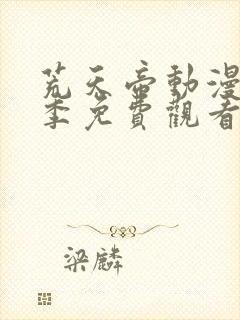 荒天帝動漫
季免費觀看
梁麟